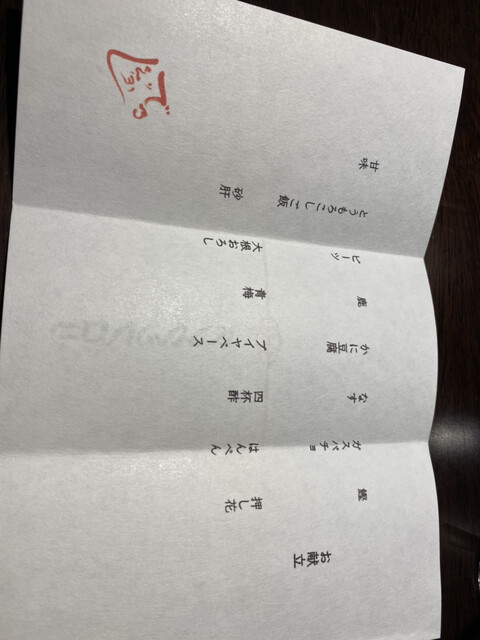 お献立
鰹
押し花
ガスパチョ
はんぺん
なす
四杯酢
かに豆腐
ブイヤベース
鹿
青梅
ビーツ
大根おろし
とうもろこしご飯
砂肝
甘味